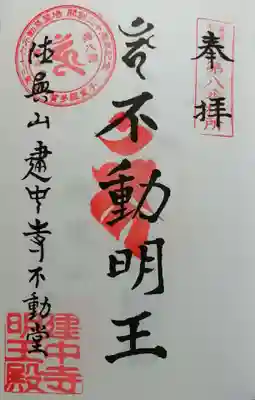 奉拝
不動明王
徳興山建中寺不動堂
建中寺
明王殿